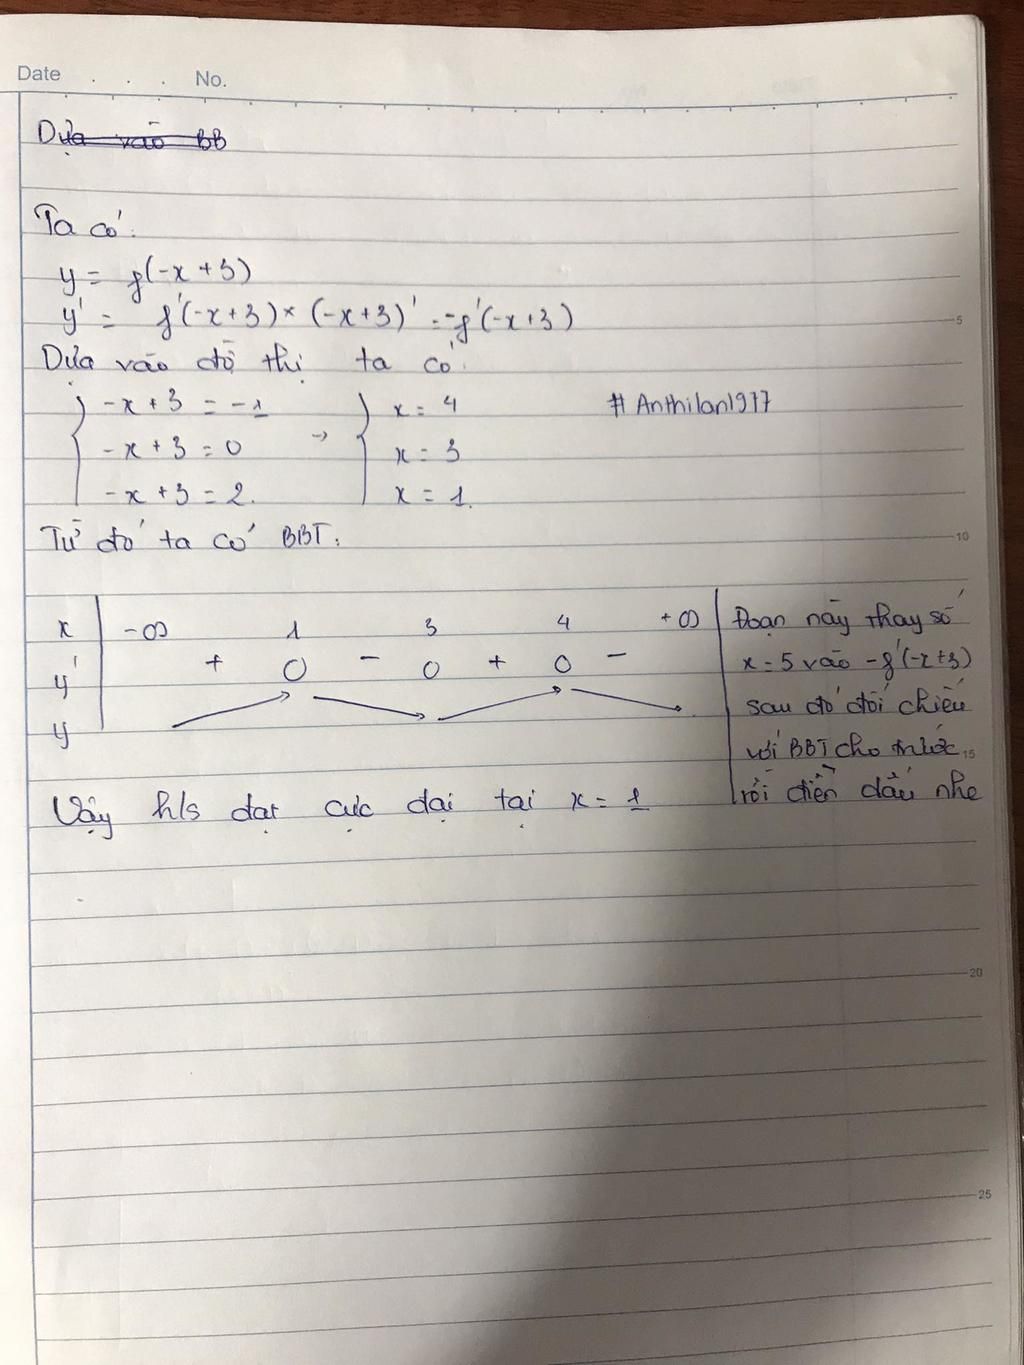 Date . . . No.
Dựa vào BB
Ta có:
y = f(-x+3)
y' = f'(-x+3) × (-x+3)' = -f'(-x+3)
5
Dựa vào đồ thị ta có:
{ -x+3 = -1 → { x = 4 # Anthilan1977
-x+3 = 0 x = 3
-x+3 = 2. x = 1.
Từ đó ta có BBT:
10
x | -∞ 1 3 4 +∞
y' + 0 - 0 + 0 -
y
Đoạn này thay số
x = 5 vào -f'(-x+3)
sau đó đối chiếu
với BBT cho trước
15
rồi điền dấu nhe
Vậy h/s đạt cực đại tại x = 1
20
25